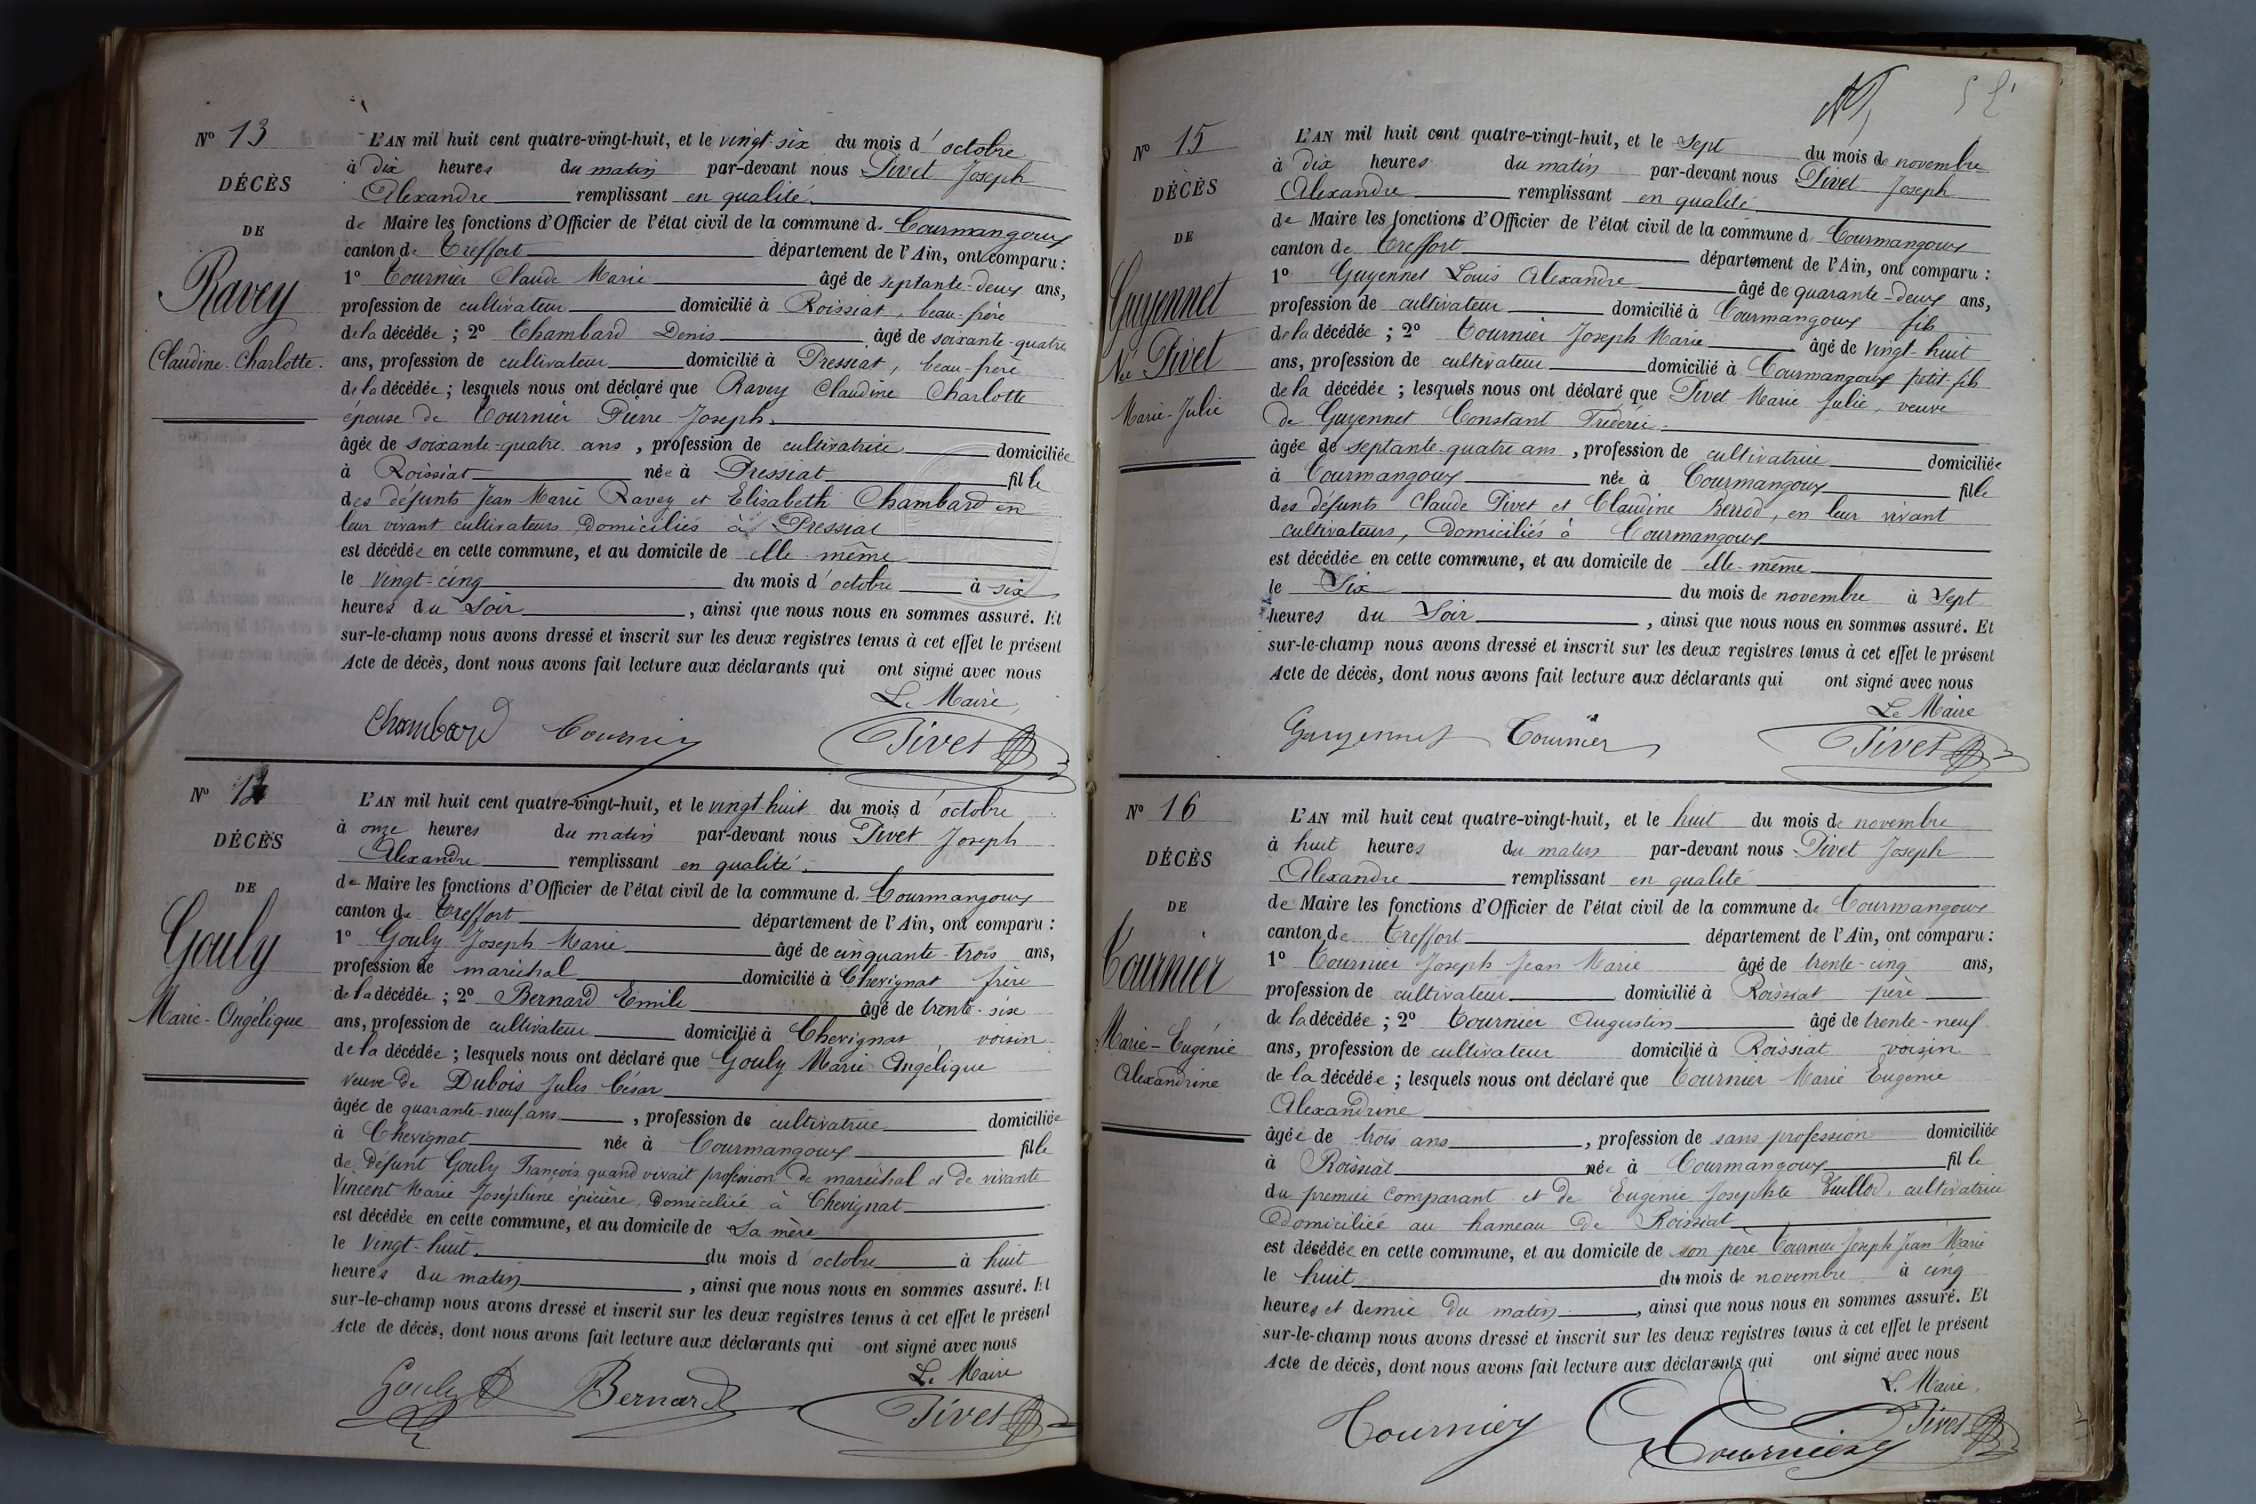 Nº 13
DÉCÈS
DE
Ravey
Claudine-Charlotte.
L'AN mil huit cent quatre-vingt-huit, et le vingt-six du mois d'octobre
à dix heures du matin par-devant nous Pivet Joseph
Alexandre remplissant en qualité
de Maire les fonctions d'Officier de l'état civil de la commune de Courmangoux
canton de Treffort département de l'Ain, ont comparu :
1º Tournier Claude Marie âgé de septante-deux ans,
profession de cultivateur domicilié à Roissiat, beau-frère
de la décédée ; 2º Chambard Denis âgé de soixante-quatre
ans, profession de cultivateur domicilié à Pressiat, beau-frère
de la décédée ; lesquels nous ont déclaré que Ravey Claudine Charlotte
épouse de Tournier Pierre Joseph.
âgée de soixante-quatre ans, profession de cultivatrice domiciliée
à Roissiat née à Pressiat fille
des défunts Jean Marie Ravey et Elisabeth Chambard en
leur vivant cultivateurs domiciliés à Pressiat
est décédée en cette commune, et au domicile de elle-même
le vingt-cinq du mois d'octobre à six
heures du soir, ainsi que nous nous en sommes assuré. Et
sur-le-champ nous avons dressé et inscrit sur les deux registres tenus à cet effet le présent
Acte de décès, dont nous avons fait lecture aux déclarants qui ont signé avec nous
Le Maire,
Chambard Tournier Pivet
Nº 14
DÉCÈS
DE
Gouly
Marie-Angélique
L'AN mil huit cent quatre-vingt-huit, et le vingt huit du mois d'octobre
à onze heures du matin par-devant nous Pivet Joseph
Alexandre remplissant en qualité
de Maire les fonctions d'Officier de l'état civil de la commune de Courmangoux
canton de Treffort département de l'Ain, ont comparu :
1º Gouly Joseph Marie âgé de cinquante-trois ans,
profession de maréchal domicilié à Chevignat frère
de la décédée ; 2º Bernard Emile âgé de trente-six
ans, profession de cultivateur domicilié à Chevignat, voisin
de la décédée ; lesquels nous ont déclaré que Gouly Marie Angélique
veuve de Dubois Jules César
âgée de quarante-neuf ans, profession de cultivatrice domiciliée
à Chevignat née à Courmangoux fille
de défunt Gouly François quand vivait profession de maréchal et de vivante
Vincent Marie Joséphine épicière, domiciliée à Chevignat
est décédée en cette commune, et au domicile de sa mère
le vingt-huit du mois d'octobre à huit
heures du matin, ainsi que nous nous en sommes assuré. Et
sur-le-champ nous avons dressé et inscrit sur les deux registres tenus à cet effet le présent
Acte de décès, dont nous avons fait lecture aux déclarants qui ont signé avec nous
Le Maire
Gouly Bernard Pivet
Nº 15
DÉCÈS
DE
Guyennet
Née Pivet
Marie-Julie
L'AN mil huit cent quatre-vingt-huit, et le sept du mois de novembre
à dix heures du matin par-devant nous Pivet Joseph
Alexandre remplissant en qualité
de Maire les fonctions d'Officier de l'état civil de la commune de Courmangoux
canton de Treffort département de l'Ain, ont comparu :
1º Guyennet Louis Alexandre âgé de quarante-deux ans,
profession de cultivateur domicilié à Courmangoux fils
de la décédée ; 2º Tournier Joseph Marie âgé de vingt-huit
ans, profession de cultivateur domicilié à Courmangoux petit-fils
de la décédée ; lesquels nous ont déclaré que Pivet Marie Julie, veuve
de Guyennet Constant Fréderic.
âgée de septante-quatre ans, profession de cultivatrice domiciliée
à Courmangoux née à Courmangoux fille
des défunts Claude Pivet et Claudine Berrod, en leur vivant
cultivateurs, domiciliés à Courmangoux
est décédée en cette commune, et au domicile de elle-même
le Six du mois de novembre à Sept
heures du Soir, ainsi que nous nous en sommes assuré. Et
sur-le-champ nous avons dressé et inscrit sur les deux registres tenus à cet effet le présent
Acte de décès, dont nous avons fait lecture aux déclarants qui ont signé avec nous
Le Maire
Guyennet Tournier Pivet
Nº 16
DÉCÈS
DE
Tournier
Marie-Eugénie
Alexandrine
L'AN mil huit cent quatre-vingt-huit, et le huit du mois de novembre
à huit heures du matin par-devant nous Pivet Joseph
Alexandre remplissant en qualité
de Maire les fonctions d'Officier de l'état civil de la commune de Courmangoux
canton de Treffort département de l'Ain, ont comparu :
1º Tournier Joseph Jean Marie âgé de trente-cinq ans,
profession de cultivateur domicilié à Roissiat père
de la décédée ; 2º Tournier Augustin âgé de trente-neuf
ans, profession de cultivateur domicilié à Roissiat voisin
de la décédée ; lesquels nous ont déclaré que Tournier Marie Eugénie
Alexandrine
âgée de trois ans, profession de sans profession domiciliée
à Roissiat née à Courmangoux fille
du premier comparant et de Eugénie Josephte Vuillod, cultivatrice
domiciliée au hameau de Roissiat
est décédée en cette commune, et au domicile de son père Tournier Joseph Jean Marie
le huit du mois de novembre à cinq
heures et demie du matin, ainsi que nous nous en sommes assuré. Et
sur-le-champ nous avons dressé et inscrit sur les deux registres tenus à cet effet le présent
Acte de décès, dont nous avons fait lecture aux déclarants qui ont signé avec nous
Le Maire,
Tournier Tournier Pivet